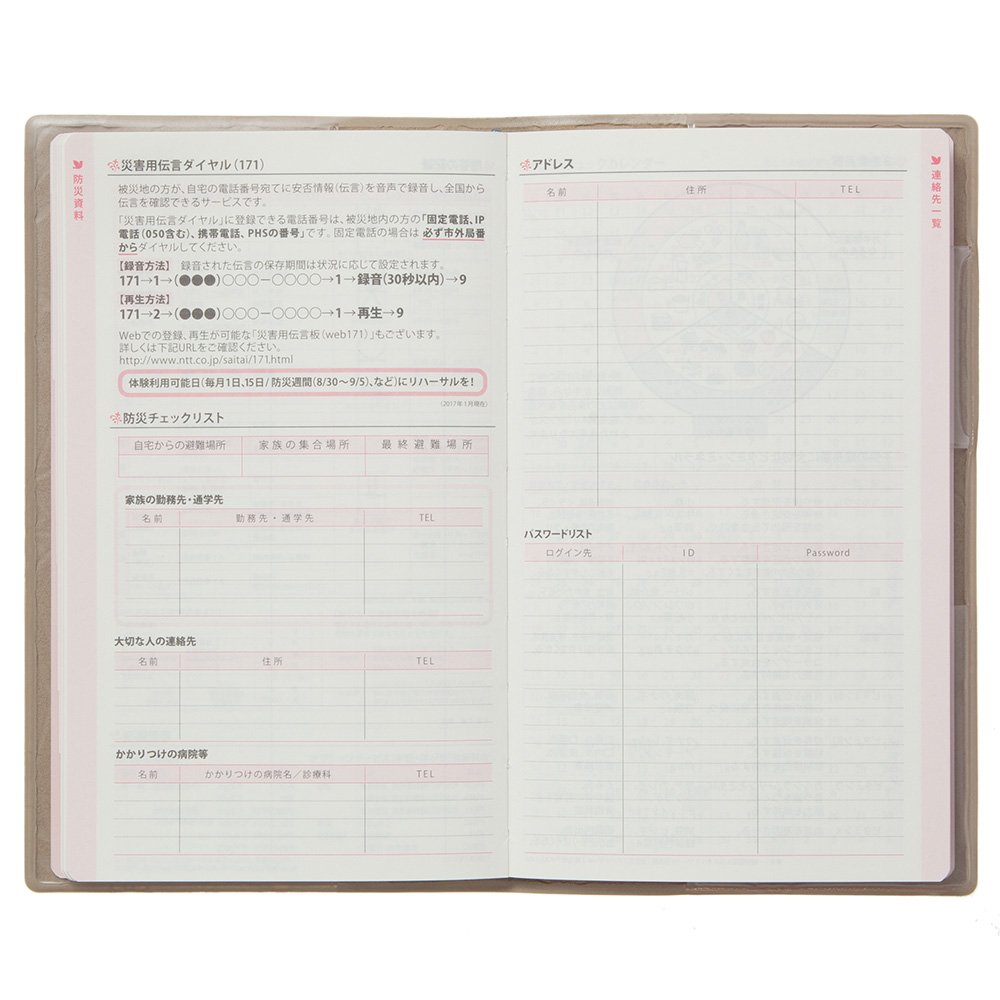 防災資料
災害用伝言ダイヤル(171)
被災地の方が、自宅の電話番号宛てに安否情報(伝言)を音声で録音し、全国から
伝言を確認できるサービスです。
「災害用伝言ダイヤル」に登録できる電話番号は、被災地内の方の「固定電話、IP
電話(050含む)、携帯電話、PHSの番号」です。固定電話の場合は 必ず市外局番
からダイヤルしてください。
【録音方法】 録音された伝言の保存期間は状況に応じて設定されます。
171→1→(●●●)○○○－○○○○→1→録音(30秒以内)→9
【再生方法】
171→2→(●●●)○○○－○○○○→1→再生→9
Webでの登録、再生が可能な「災害用伝言板(web171)」もございます。
詳しくは下記URLをご確認ください。
http://www.ntt.co.jp/saitai/171.html
体験利用可能日(毎月1日、15日/ 防災週間(8/30～9/5)、など)にリハーサルを!
(2017年1月現在)
防災チェックリスト
自宅からの避難場所 家族の集合場所 最終避難場所
家族の勤務先・通学先
名前 勤務先・通学先 TEL
大切な人の連絡先
名前 住所 TEL
かかりつけの病院等
名前 かかりつけの病院名／診療科 TEL
アドレス
名前 住所 TEL
パスワードリスト
ログイン先 ID Password
連絡先一覧